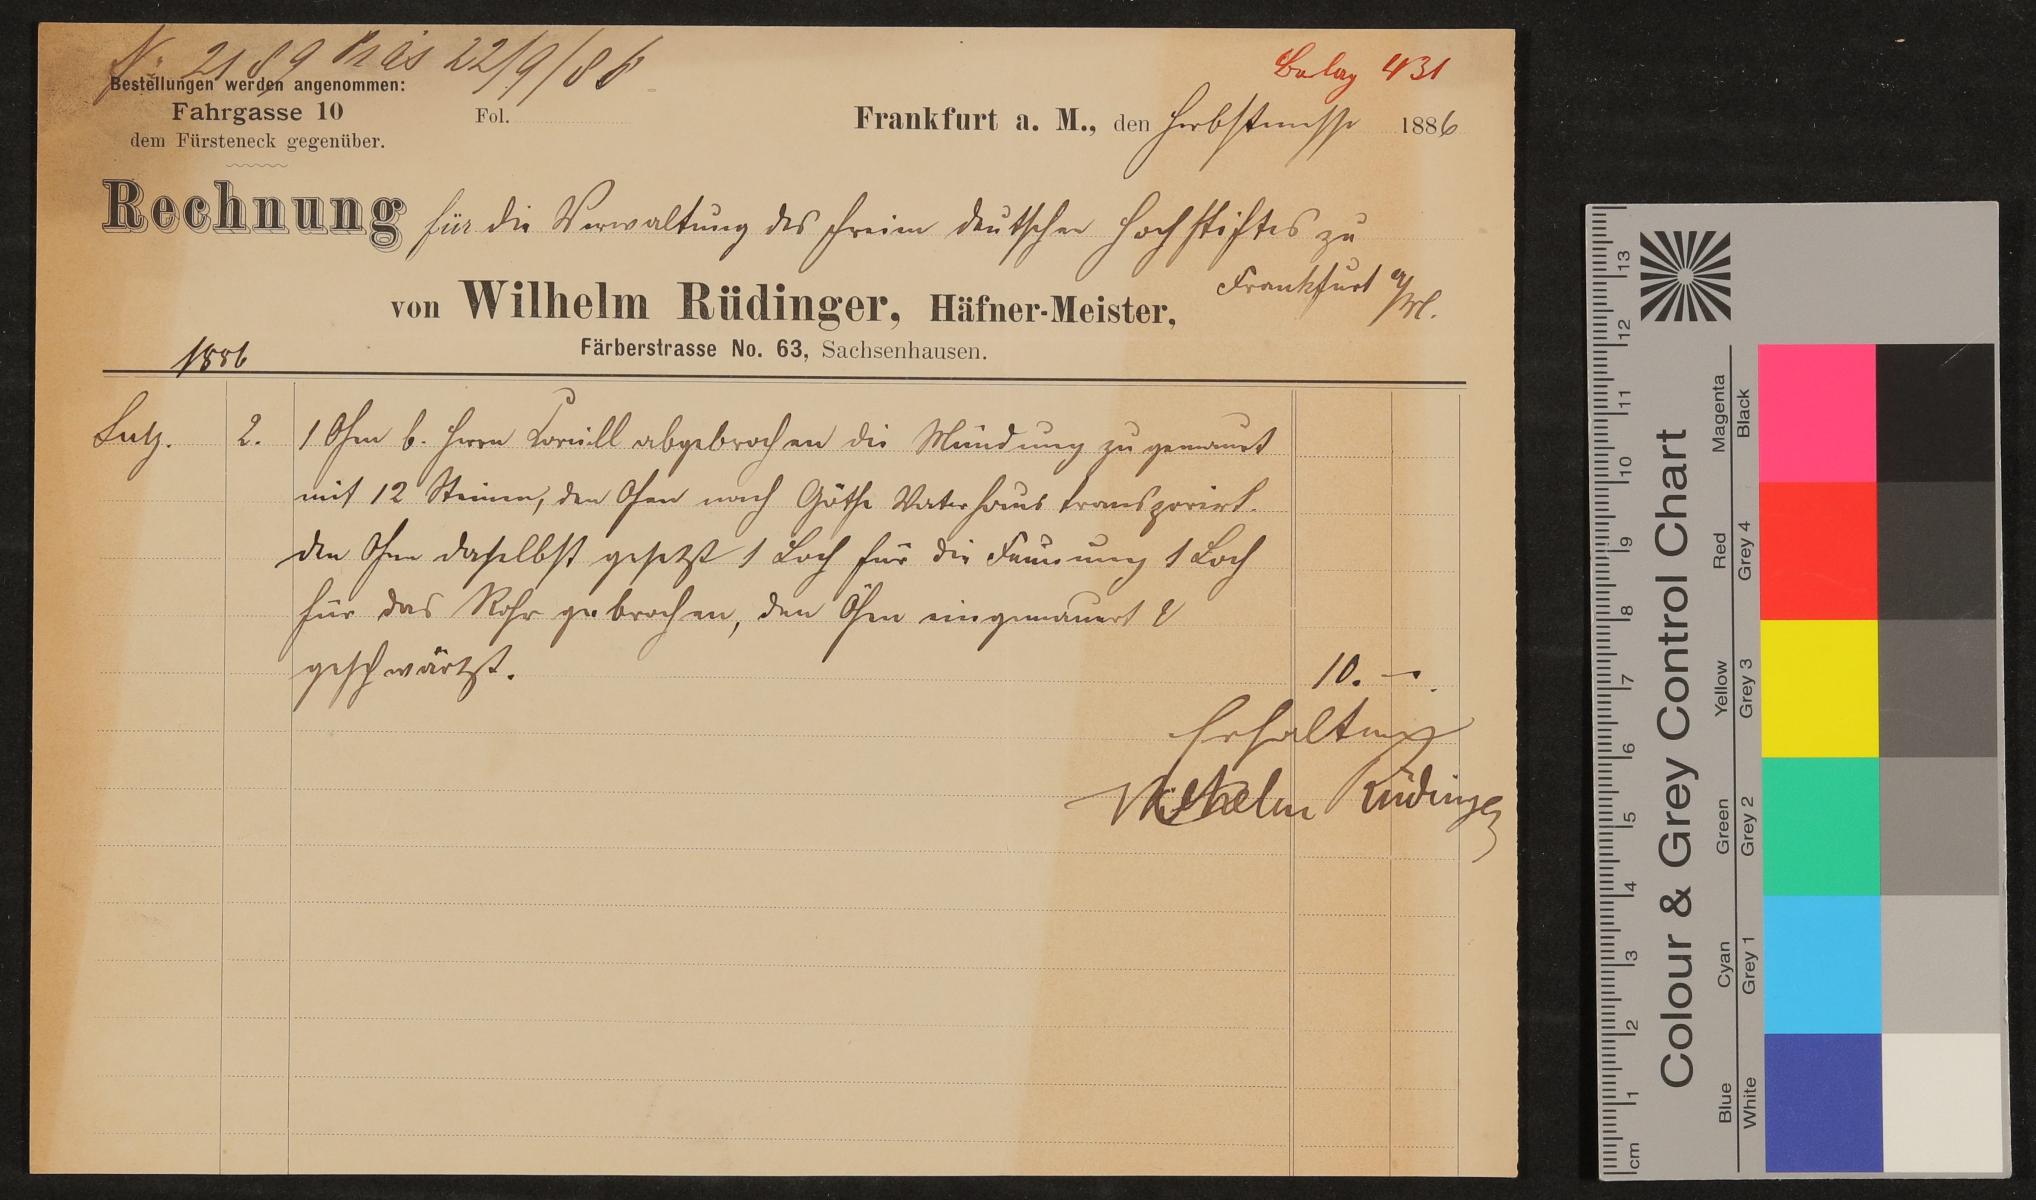 No 2189 Präs 22/9/86
Belag 431
Bestellungen werden angenommen:
Fahrgasse 10
dem Fürsteneck gegenüber.
Fol.
Frankfurt a. M., den Herbstmesse 1886
Rechnung für die Verwaltung des freien deutschen Hochstiftes zu
Frankfurt a/M.
von Wilhelm Rüdinger, Häfner-Meister,
Färberstrasse No. 63, Sachsenhausen.
1886
Sept. 2. 1 Ofen b. Herrn Cornill abgebrochen die Mündung zugemauert
mit 12 Steinen, den Ofen nach Göthe Vaterhaus transporirt.
den Ofen daselbst gesetzt 1 Loch für die Feuerung 1 Loch
für das Rohr gebrochen, den Ofen eingemauert &
geschwärtzt. 10. —.
Erhalten
Wilhelm Rüdinger
Colour & Grey Control Chart
Blue Cyan Green Yellow Red Magenta
White Grey 1 Grey 2 Grey 3 Grey 4 Black
cm 1 2 3 4 5 6 7 8 9 10 11 12 13